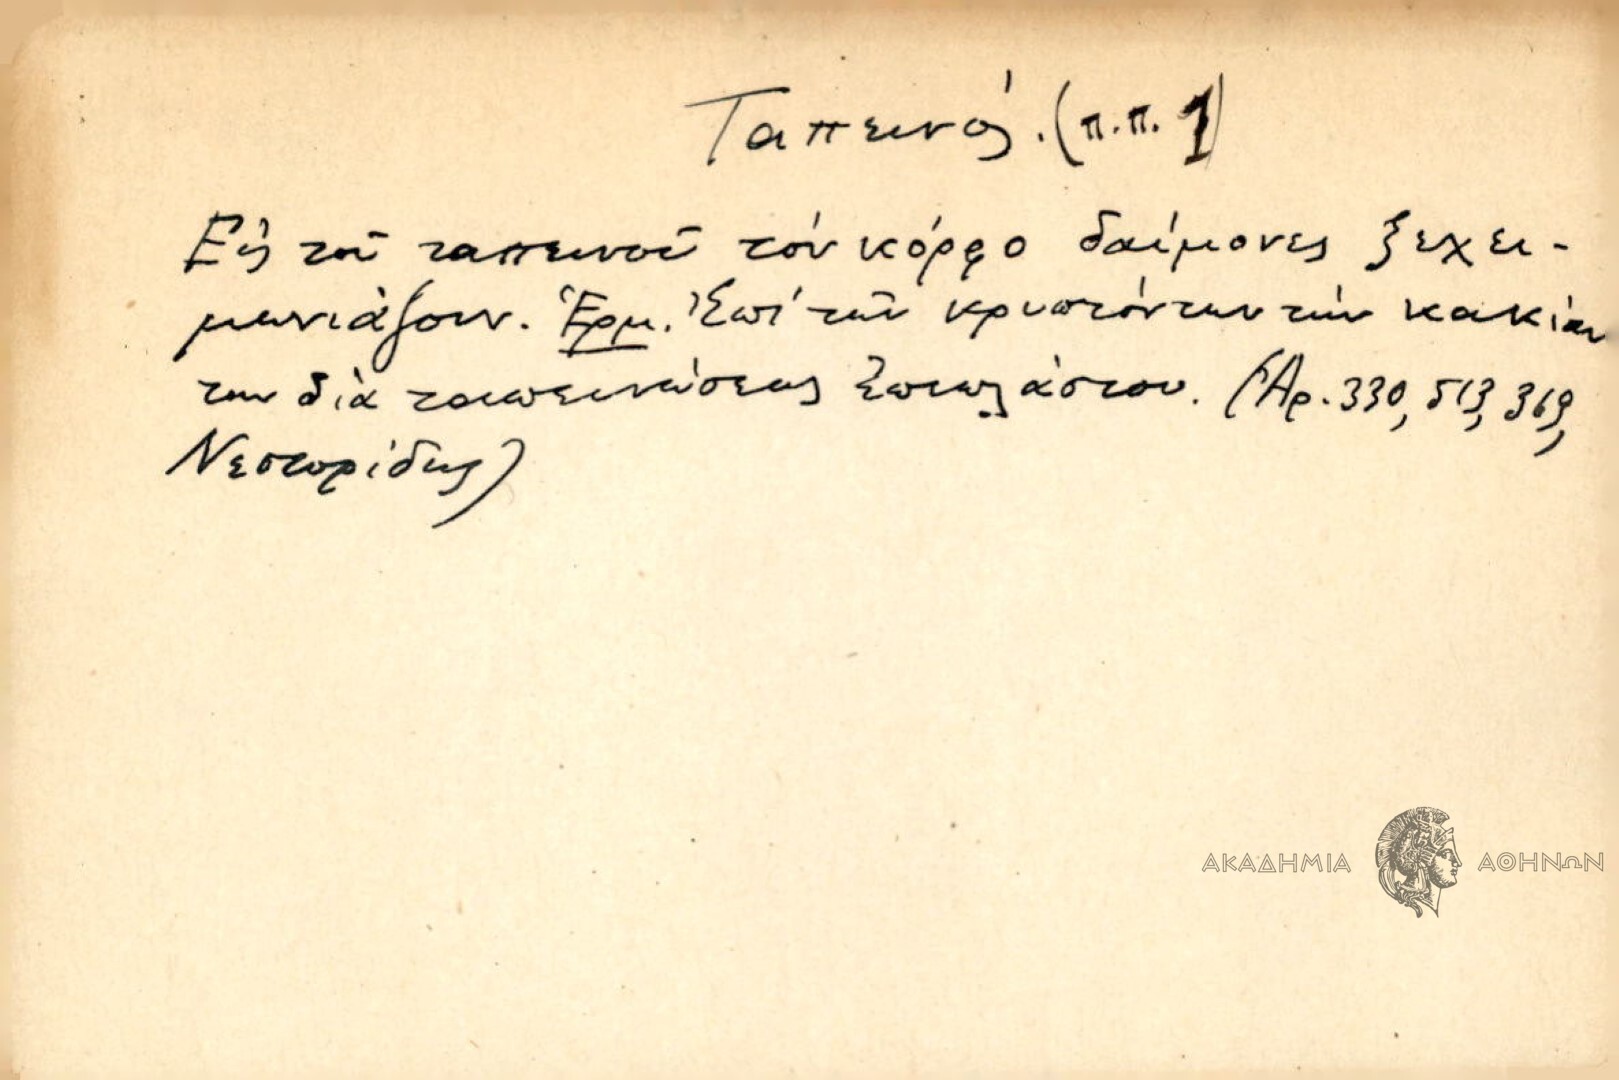 Ταπεινός. (π.π. 1)
Εἰς τοῦ ταπεινοῦ τόν κόρφο δαίμονες ξεχει-
μωνιάζουν. Ἑρμ. Ἐπί τῶν κρυπτόντων τήν κακίαν
των διὰ ταπεινώσεως ἐπιπλάστου. (Ἀρ. 330, 513, 369,
Νεστορίδης)
ΑΚΑΔΗΜΙΑ ΑΘΗΝΩΝ